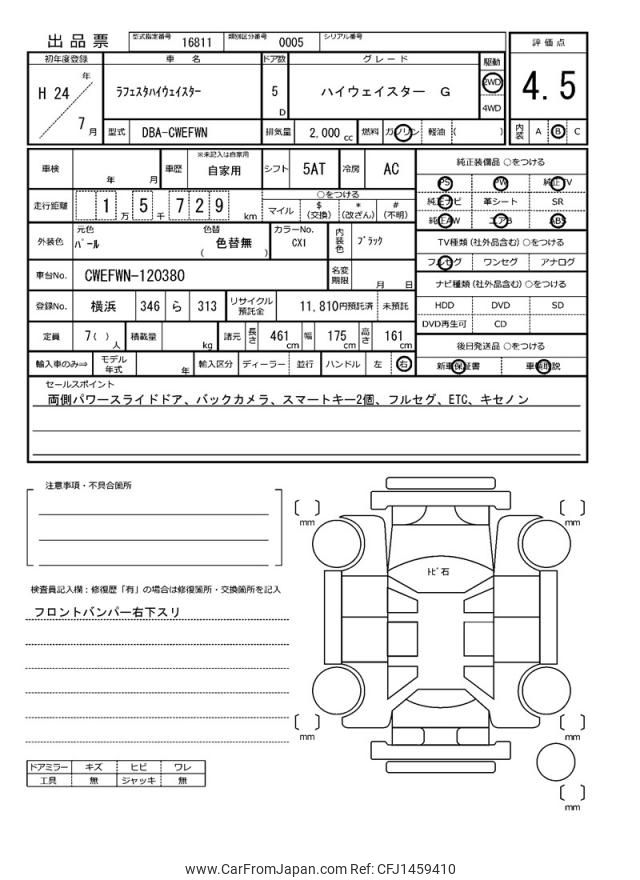 出品票 型式指定番号 16811 類別区分番号 0005 シリアル番号
初年度登録 車名 ドア数 グレード 駆動 評価点
H 24 年 7 月 ラフェスタハイウェイスター 5 D ハイウェイスター G 2WD 4WD 4.5
型式 DBA-CWEFWN 排気量 2,000 cc 燃料 ガソリン 軽油 ( ) 内装 A B C
車検 年 月 車歴 ※未記入は自家用 自家用 シフト 5AT 冷房 AC 純正装備品 ○をつける
PS PW 純正TV
走行距離 1 万 5 千 7 2 9 km ○をつける 純正ナビ 革シート SR
マイル $ (交換) * (改ざん) # (不明) 純正AW エアB ABS
外装色 元色 パール 色替 ( 色替無 ) カラーNo. CX1 内装色 ブラック TV種類 (社外品含む) ○をつける
フルセグ ワンセグ アナログ
車台No. CWEFWN-120380 名変期限 月 日 ナビ種類 (社外品含む) ○をつける
登録No. 横浜 346 ら 313 リサイクル預託金 11,810円預託済 未預託 HDD DVD SD
DVD再生可 CD
定員 7( ) 人 積載量 kg 諸元 長さ 461 cm 幅 175 cm 高さ 161 cm 後日発送品 ○をつける
輸入車のみ⇒ モデル年式 年 輸入区分 ディーラー 並行 ハンドル 左 右 新車保証書 車輌取説
セールスポイント
両側パワースライドドア、バックカメラ、スマートキー2個、フルセグ、ETC、キセノン
注意事項・不具合箇所
mm mm
トビ石
検査員記入欄：修復歴「有」の場合は修復箇所・交換箇所を記入
フロントバンパー右下スリ
mm mm
ドアミラー キズ ヒビ ワレ
工具 無 ジャッキ 無
mm
www.CarFromJapan.com Ref: CFJ1459410